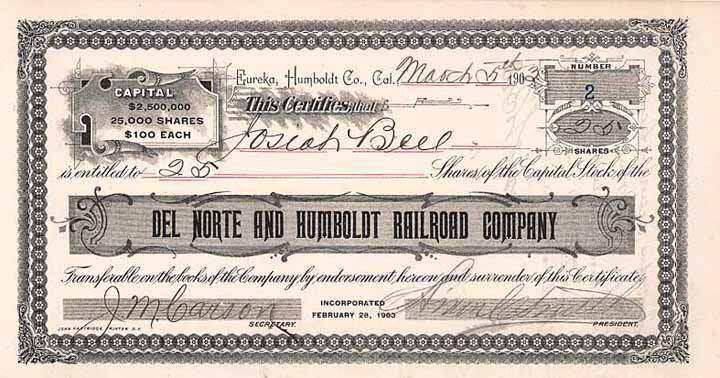 Eureka, Humboldt Co., Cal. March 5th 190
NUMBER
2
CAPITAL
$2,500,000
25,000 SHARES
$100 EACH
This Certifies, that
25
SHARES
Josiah Bell
is entitled to 25 Shares of the Capital Stock of the
DEL NORTE AND HUMBOLDT RAILROAD COMPANY
Transferable on the books of the Company by endorsement hereon and surrender of this Certificate
J. M. Carson
SECRETARY.
INCORPORATED
FEBRUARY 28, 1903
PRESIDENT.
JOHN PARTRIDGE, PRINTER S.F.